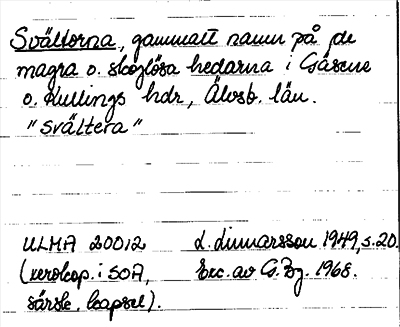 Svältorna, gammalt namn på de
magra o. skoglösa hedarna i Gäsene
o. Kullings hdr, Älvsb. län.
"Svältera"
ULMA 20012 L. Linnarsson 1949, s. 20.
(xerokop. i SOA, Exc. av G. Bg. 1968.
särsk. kapsel).